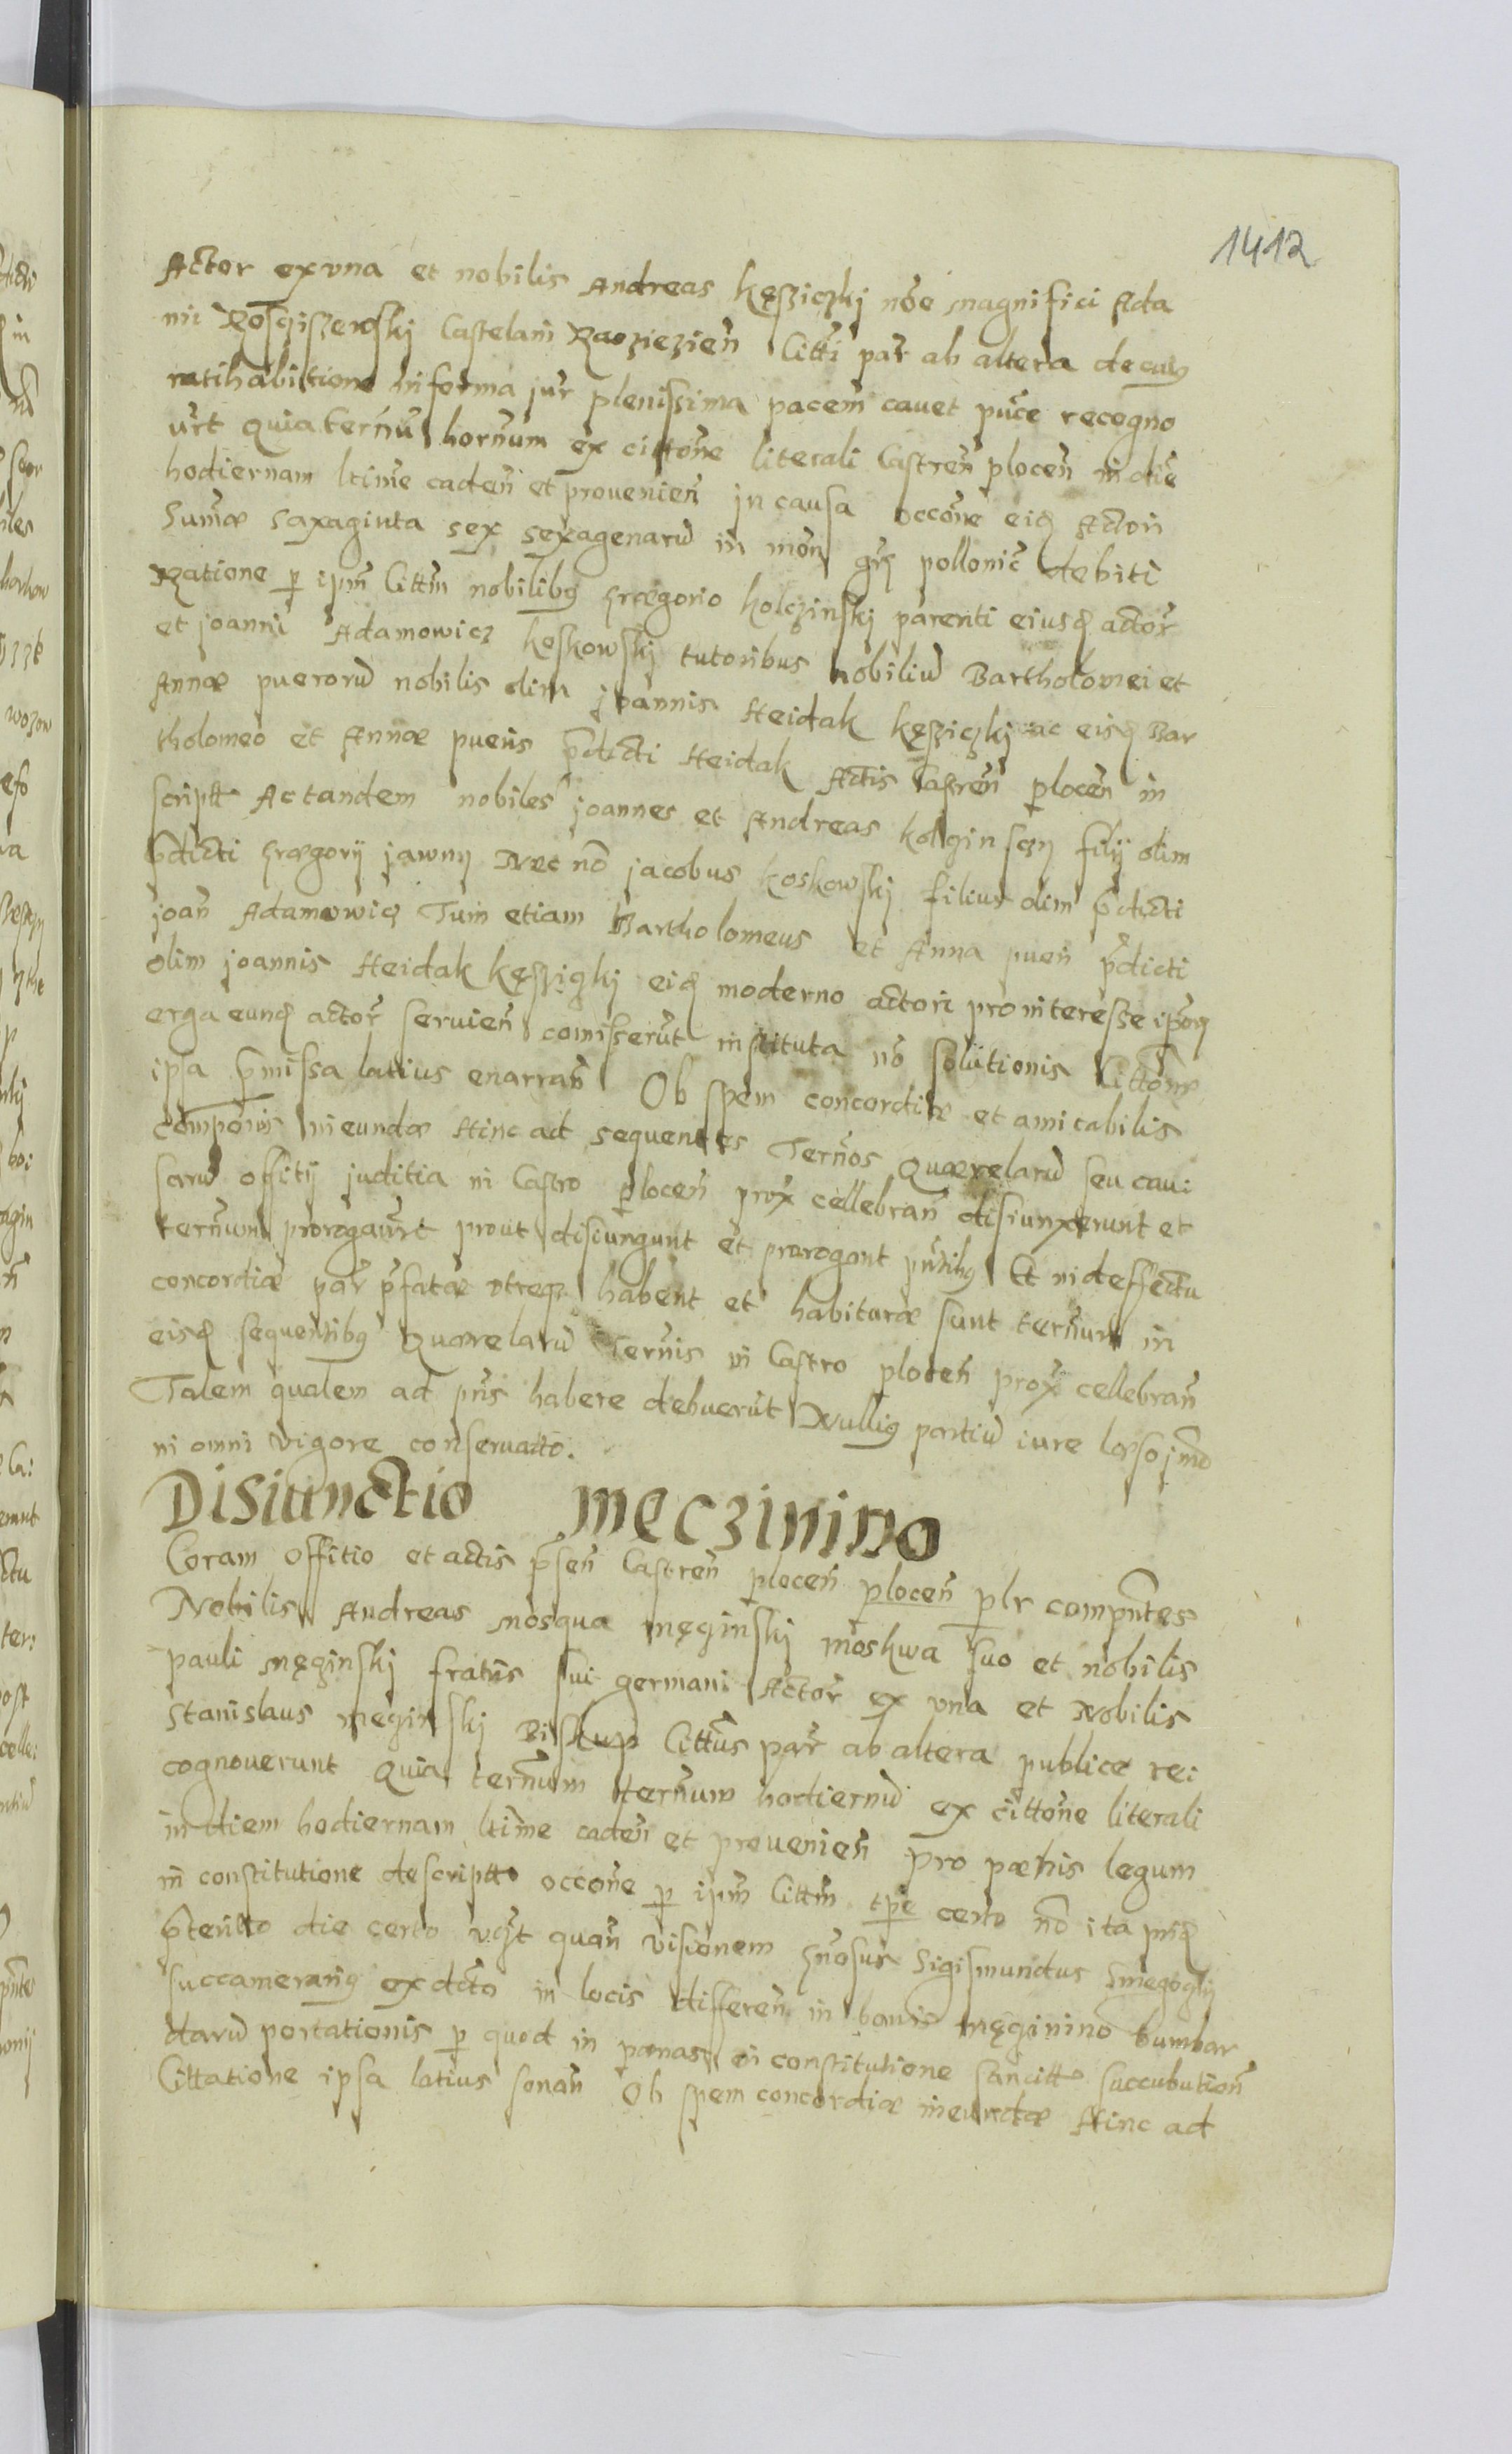 1412
Actor ex vna et nobilis Andreas Kęsziczkj nōe magnifici Ada
mi Rosczisewskj Castelani Racziezien̄ Citti par̄ ab altera de cuiꝯ
ratihabitione in forma jur plenissima pacem cauet pūce recogno
uȓt Quia tern̄u horn̄um ex cittōne literali Castren̄ plocen̄ in diē
hodiernam ltīme caden̄ et prouenien̄ in causa occōne eiꝗ Actori
Sum̄æ saxaginta sex sexagenarū in mon̄ grꝭ pollonic̄ debiti
Ratione ꝑ ipm̄ Cittm̄ nobilibꝯ Græegorio Kolczinskj parenti eiusꝗ actor̄
et joanni Adamowicz Koskowskj tutoribus nobiliū Bartholomei et
Annæ puerorū nobilis olim joannis Heidak Kęsziczkj ac eisꝗ Bar
tholomeo et Annæ pueris p̄dicti Heidak Actis Castren̄ plocen̄ in
script̄ Ac tandem nobiles joannes et Andreas Kolginsczy filij olim
p̄dicti Græegorij jawny Nec nō jacobus Koskowskj filius olim p̄dicti
joan̄ Adamowicz Tum etiam Bartholomeus et Anna pueri p̄dicti
olim joannis Heidak Kęsziczkj eiꝗ moderno actori pro interesse ip̄orꝗ
erga eunꝗ actor̄ seruien̄ comisserūt instituta nō solutionis Cittōne
ipsa p̄missa latius enarran̄ Ob spem concordiæ et amicabilis
compōnis ineundæ Hinc ad sequentes Tern̄os Quærelarū seu cau:
sarū offitij juditia in Castro plocen̄ prox̄ cellebran̄ disiunxerunt et
tern̄um prorogaūrt prout disiungunt et prorogant pn̄tibꝯ Et in deffectu
concordiæ par̄ p̄fatæ vtreqꝫ habent et habituræ sunt tern̄um in
eisꝗ sequentibꝯ Quærelarū Tern̄is in Castro plocen̄ prox̄ cellebran̄
Talem qualem ad pn̄s habere debuerūt Nulliꝯ partiū iure læso jm̄o
in omni vigore conseruatto.
Disiunctio Meczinino
Coram Offitio et actis p̄sen̄ Castren̄ plocen̄ plocen̄ plr̄ compn̄tes
Nobilis Andreas Mosqua Męginskj Moskwa suo et nobilis
pauli Męginskj fratris sui germani Actor̄ ex vna et Nobilis
Stanislaus Męginskj Biskup Cittūs par̄ ab altera publice re:
cognouerunt Quia tern̄um tern̄um hodiernū ex cittōne literali
in diem hodiernam ltīme caden̄ et prouenien̄ pro pæhis legum
in constitutione descript̄ occōne ꝑ ipm̄ Cittm̄ tp̄e certo nō ita pridꝗ
p̄terito die certo vꝗt quan̄ visionem Gn̄osus Sigismundus
succamerariꝯ ex dcto in locis differen̄ in bonis Męginino bumbar
darū portationis ꝑ quod in pænas in constitutione sancitt̄ succubution̄
Cittatione ipsa latius sonan̄ Ob spem concordiæ ineundæ Hinc ad